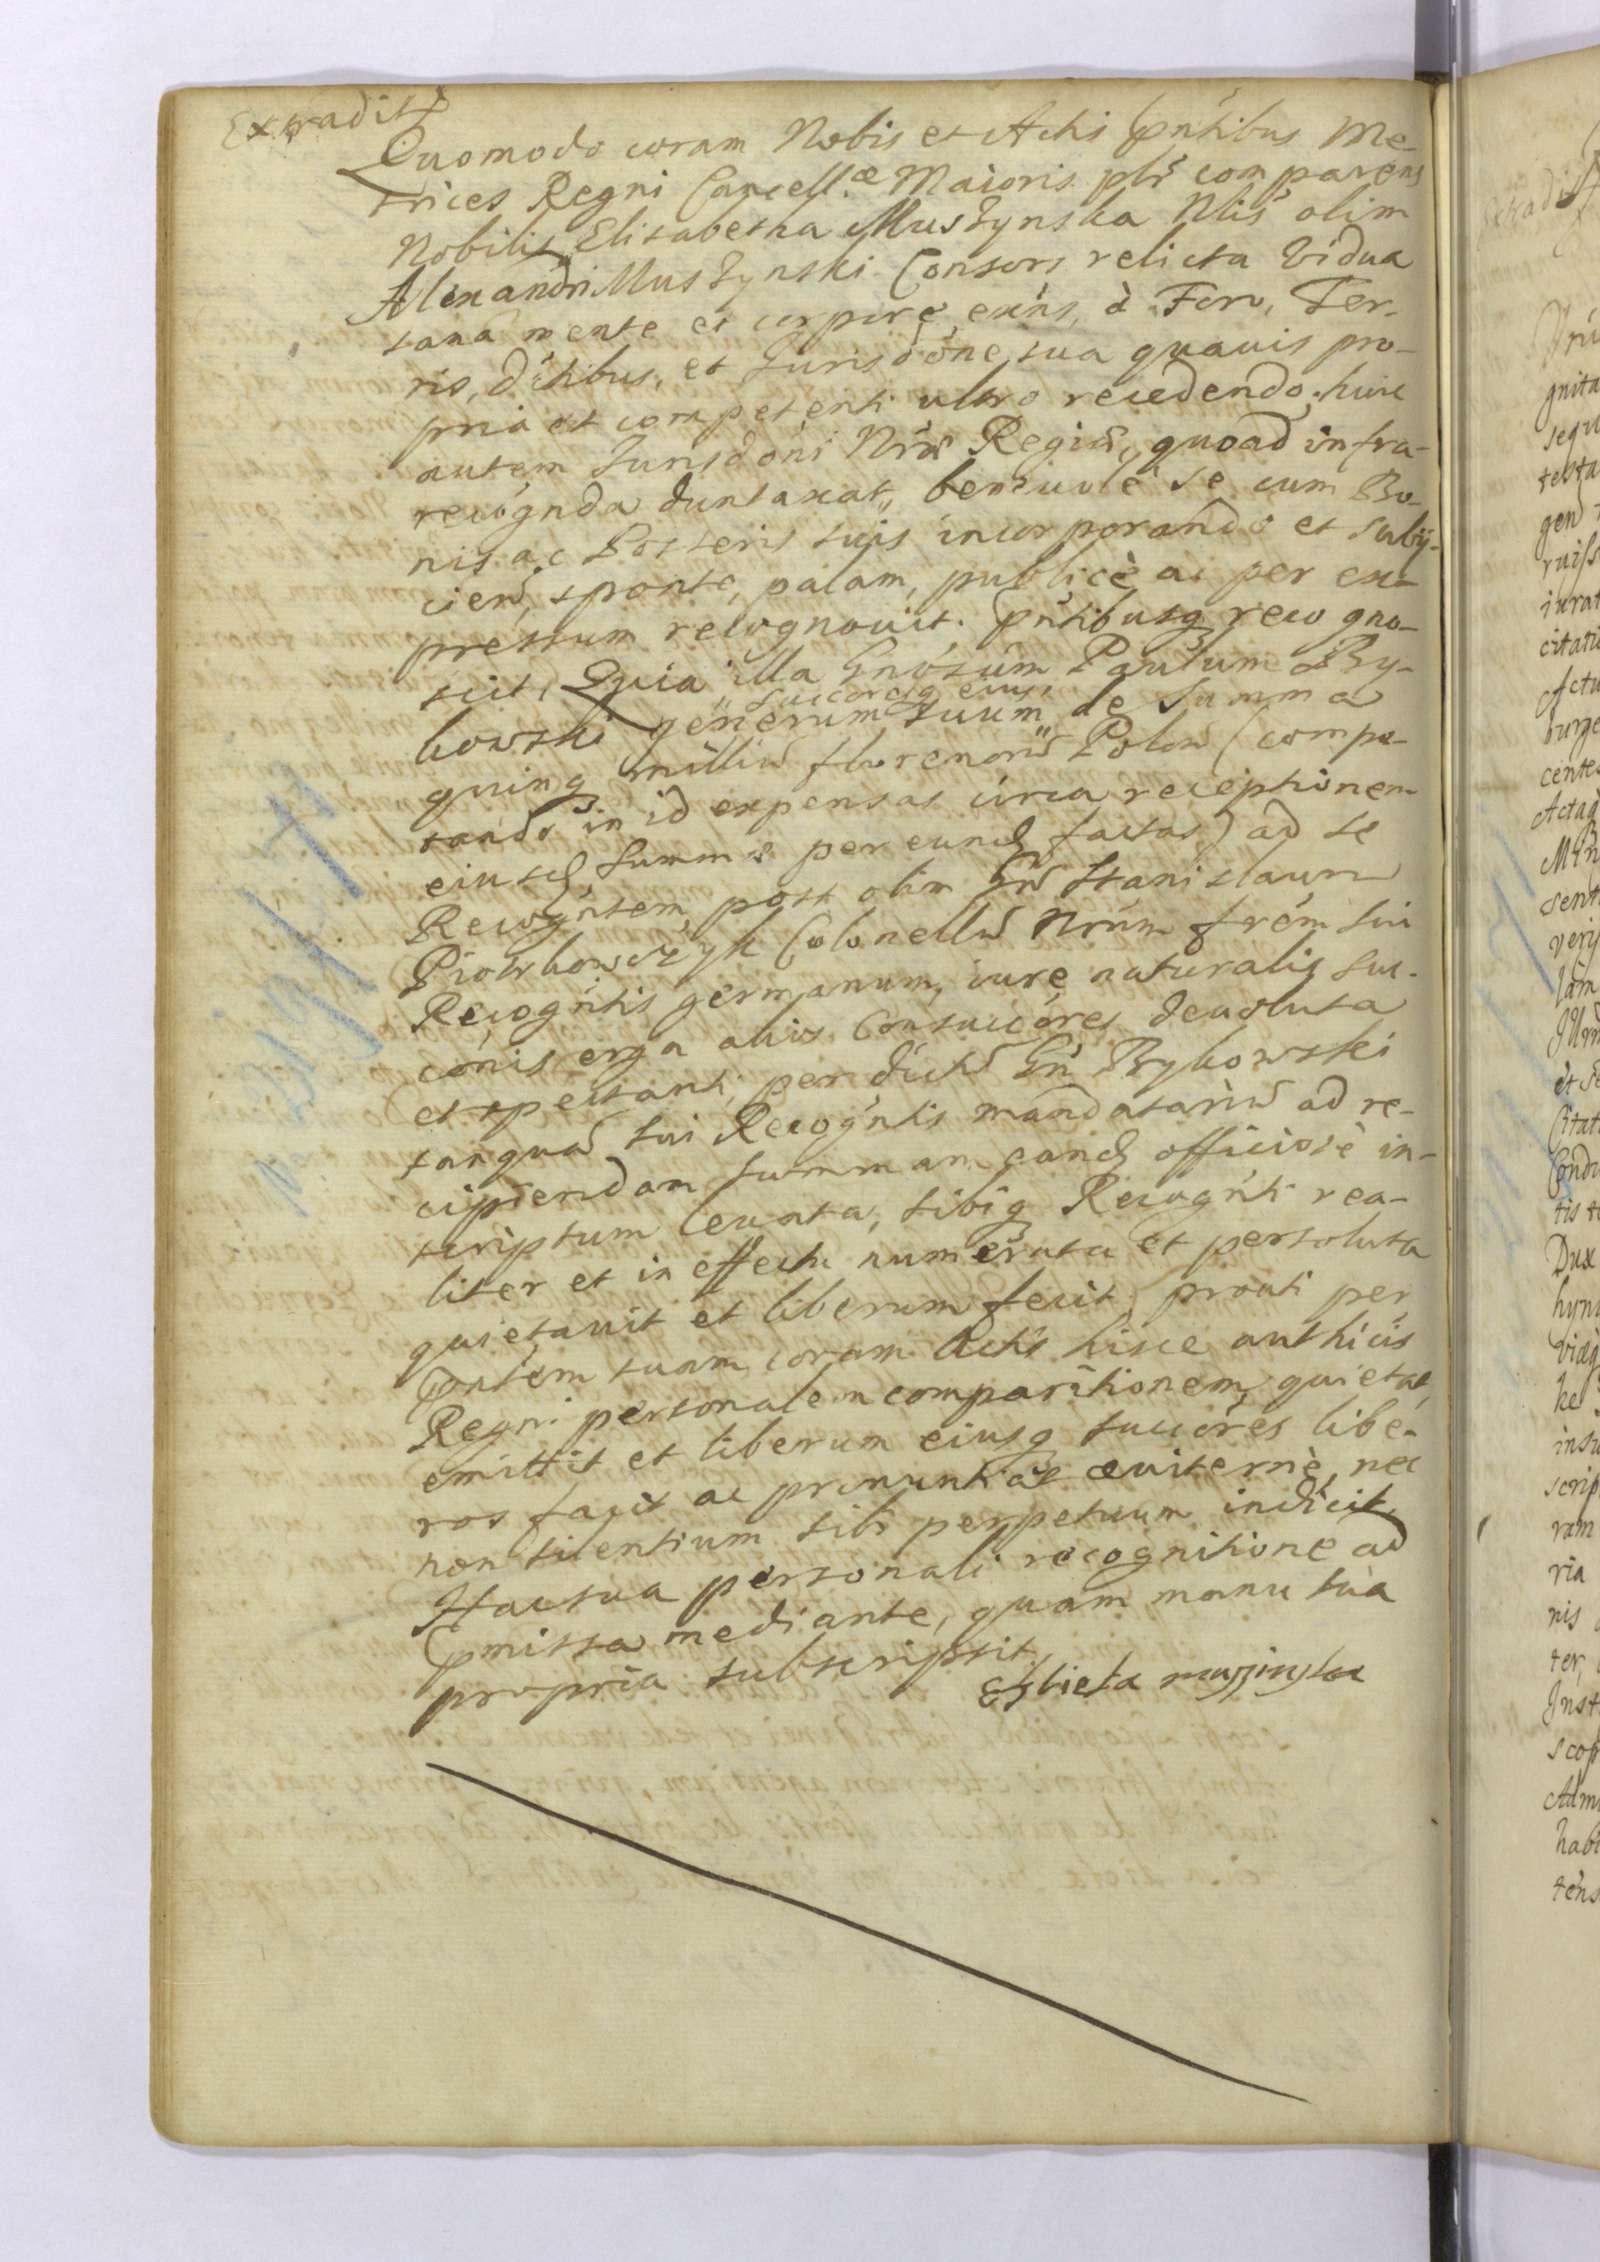 Extradit
Quomodo coram Nobis et Actis pntibus Me-
trices Regni Cancell.æ Maioris plr comparens
Nobilis Elisabetha Muszynska Nlis olim
Alexandri Muszynski Consors relicta Vidua
sana mente et corpore exns, à Foro, Ter-
ris, dtibus, et Jurisdone sua quavis pro-
pria et competenti ultro recedendo, huic
autem Jurisdoni Nræ Regiæ, quoad infra-
recognda duntaxat, benevole se cum Bo-
nis ac Posteris suis incorporando et subij-
ciend, sponte, palam, publicè ac per ex-
pressum recognovit. Pntibusq recogno-
scit, Quia illa Gnosum Paulum By-
kowski generum suum succoresq eius, de Summa
quinq milliu florenoru Polon (compu-
tando in id expensas circa receptionem
eiusd summæ per eund factas) ad se
Recogntem post olim Gn Stanislaum
Piotrkowczyk Colonellu Nrum frem sui
Recogntis germanum, iure naturalis suc-
conis erga alios Consuccores devoluta
et spectanti, per dictu Gn Bykowski
tanquã sui Recogntis mandatariu ad re-
cipiendam summam eand officiosè in-
scriptum levata, sibiq Recognti rea-
liter et in effectu numerata et persoluta
quietavit et liberum fecit, prouti per
pntem suam coram Actis hisce authicis
Regni personalem comparitionem, quietat,
emittit et liberum eiusq succores libe-
ros facit ac pronuntiat æviternè, nec
non silentium sibi perpetuum indicit.
Hac sua personali recognitione ad
pmissa mediante, quam manu sua
propria subscripsit.
Elzbieta muszinska